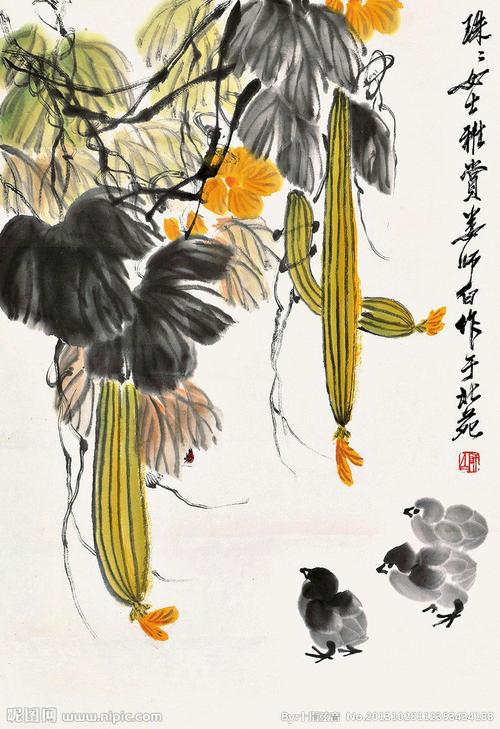 珠〻女士雅赏娄师白作于北苑
昵图网 www.nipic.com
By:十指弦音 No.20131028112353434188